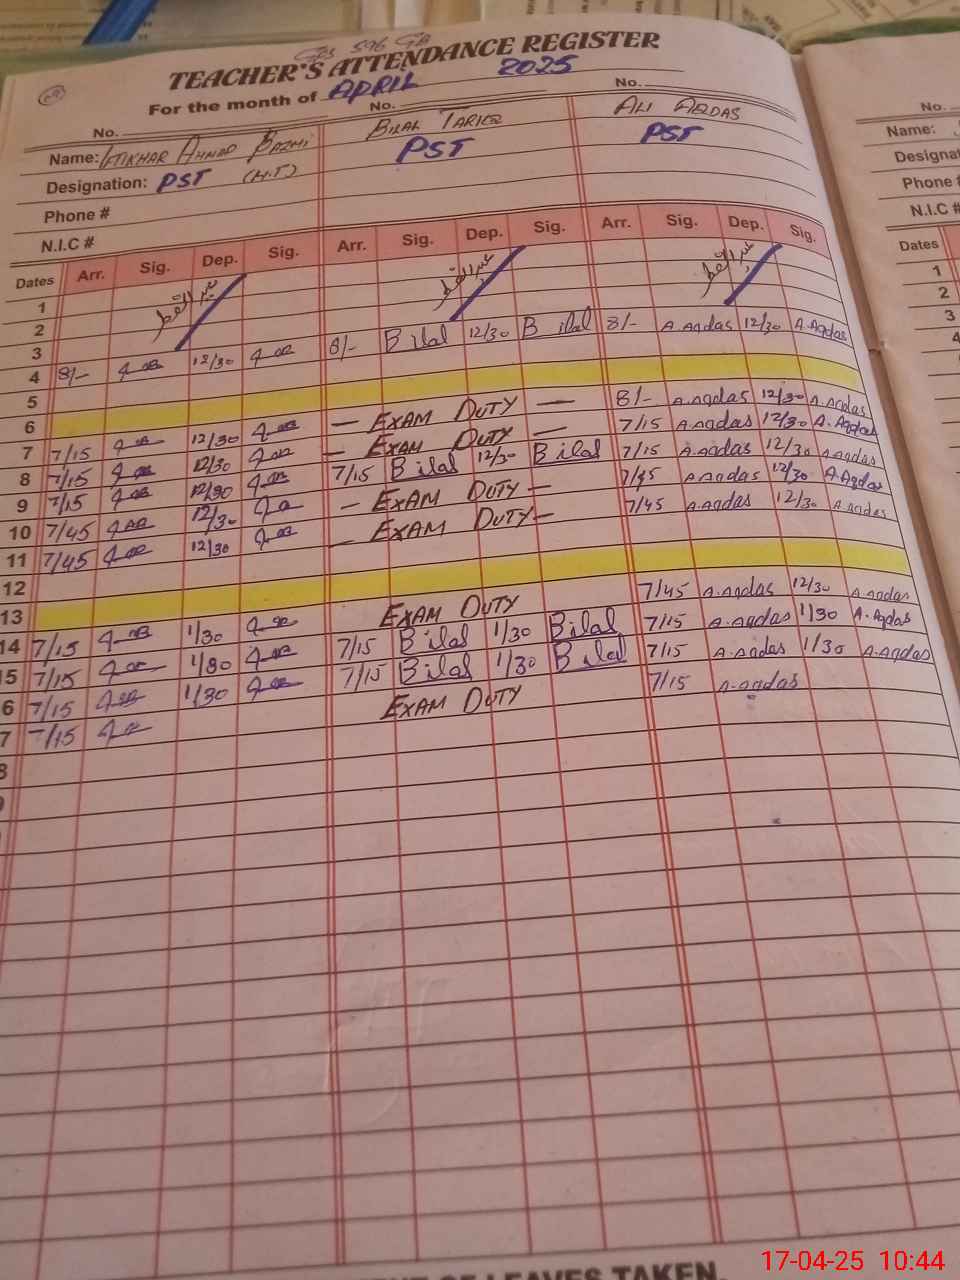 GPS 596 GB
TEACHER'S ATTENDANCE REGISTER
For the month of APRIL 2025
No. No. No.
Name: IFTIKHAR AHMAD BAZMI BILAL TARIQ ALI AQDAS
Designation: PST (H.T) PST PST
Phone #
N.I.C #
Dates Arr. Sig. Dep. Sig. Arr. Sig. Dep. Sig. Arr. Sig. Dep. Sig.
1 عید الفطر عید الفطر عید الفطر
2
3
4 8/- 12/30 8/- Bilal 12/30 Bilal 8/- A.Aqdas 12/30 A.Aqdas
5
6
7 7/15 12/30 — EXAM DUTY — 8/- A.Aqdas 12/30 A.Aqdas
8 7/15 12/30 — EXAM DUTY — 7/15 A.Aqdas 12/30 A.Aqdas
9 7/15 12/30 7/15 Bilal 12/30 Bilal 7/15 A.Aqdas 12/30 A.Aqdas
10 7/45 12/30 — EXAM DUTY — 7/45 A.Aqdas 12/30 A.Aqdas
11 7/45 12/30 — EXAM DUTY — 7/45 A.Aqdas 12/30 A.Aqdas
12
13
14 7/15 1/30 EXAM DUTY 7/45 A.Aqdas 12/30 A.Aqdas
15 7/15 1/30 7/15 Bilal 1/30 Bilal 7/15 A.Aqdas 1/30 A.Aqdas
6 7/15 1/30 7/15 Bilal 1/30 Bilal 7/15 A.Aqdas 1/30 A.Aqdas
7 7/15 EXAM DUTY 7/15 A.Aqdas
8
9
No.
Name:
Designat
Phone #
N.I.C #
Dates
1
2
3
4
OF LEAVES TAKEN.
17-04-25 10:44